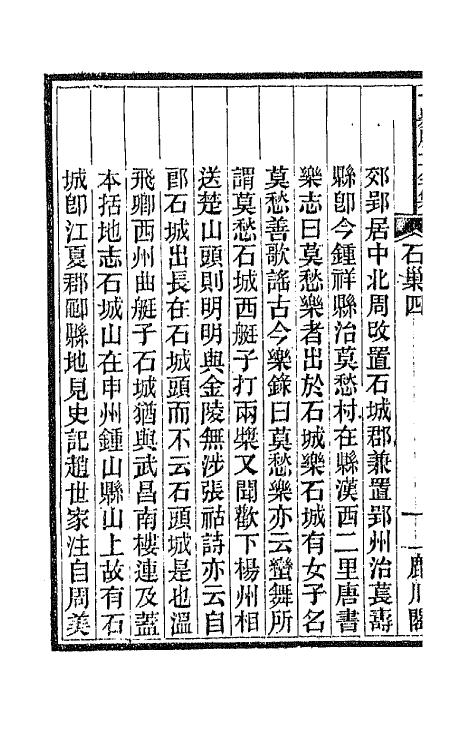 石巢四
郊郢居中北周改置石城郡兼置郢州治萇壽
縣卽今鍾祥縣治莫愁村在縣漢西二里唐書
樂志曰莫愁樂者出於石城樂石城有女子名
莫愁善歌謠古今樂錄曰莫愁樂亦云蠻舞所
謂莫愁石城西艇子打兩槳又聞歡下楊州相
送楚山頭則明明與金陵無涉張祜詩亦云自
郎石城出長在石城頭而不云石頭城是也溫
飛卿西州曲艇子石城猶與武昌南樓連及蓋
本括地志石城山在申州鍾山縣山上故有石
城卽江夏郡鄳縣地見史記趙世家注自周美